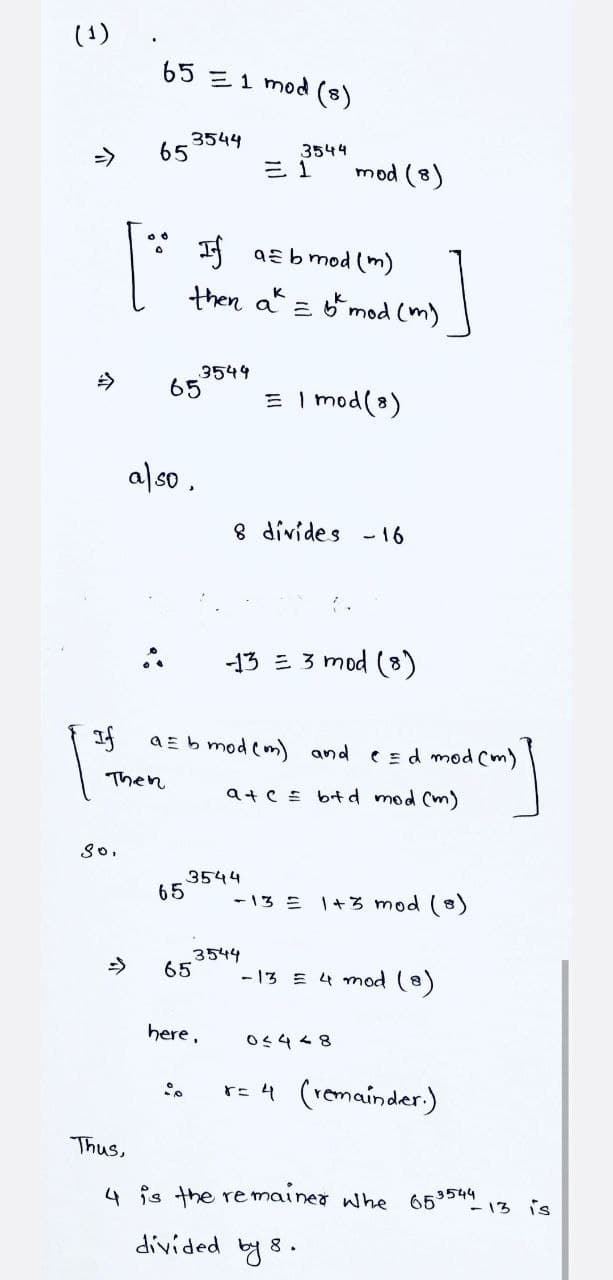 (1) .
65 ≡ 1 mod (8)
⇒ 65^3544 ≡ 1^3544 mod (8)
[∵ If a ≡ b mod (m)
then a^k ≡ b^k mod (m)]
⇒ 65^3544 ≡ 1 mod (8)
also,
8 divides -16
∴ -13 ≡ 3 mod (8)
[If a ≡ b mod (m) and c ≡ d mod (m)
Then a+c ≡ b+d mod (m)]
so,
65^3544 -13 ≡ 1+3 mod (8)
⇒ 65^3544 -13 ≡ 4 mod (8)
here, 0 ≤ 4 < 8
∴ r = 4 (remainder.)
Thus,
4 is the remainer whe 65^3544 -13 is
divided by 8.